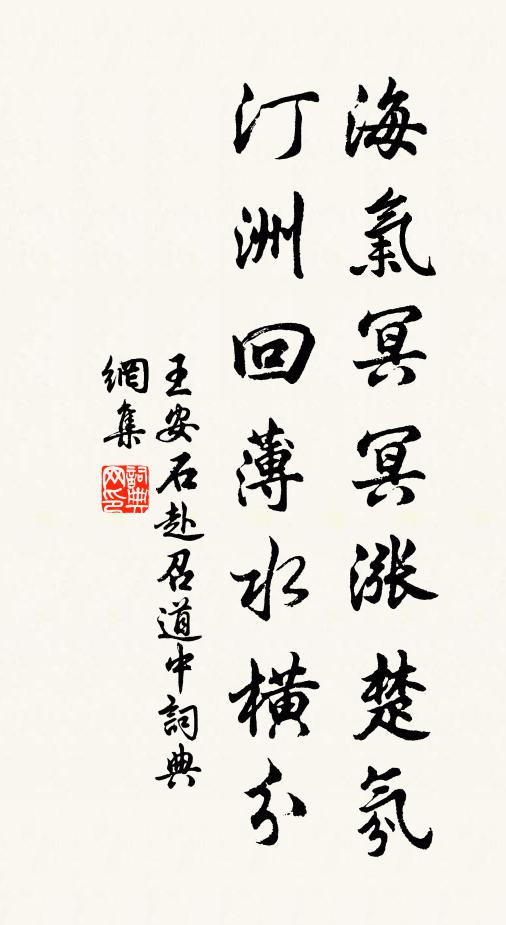 海氣冥冥漲楚氛
汀洲回薄水橫分
王安石赴召道中詞典
網集
詞典網印